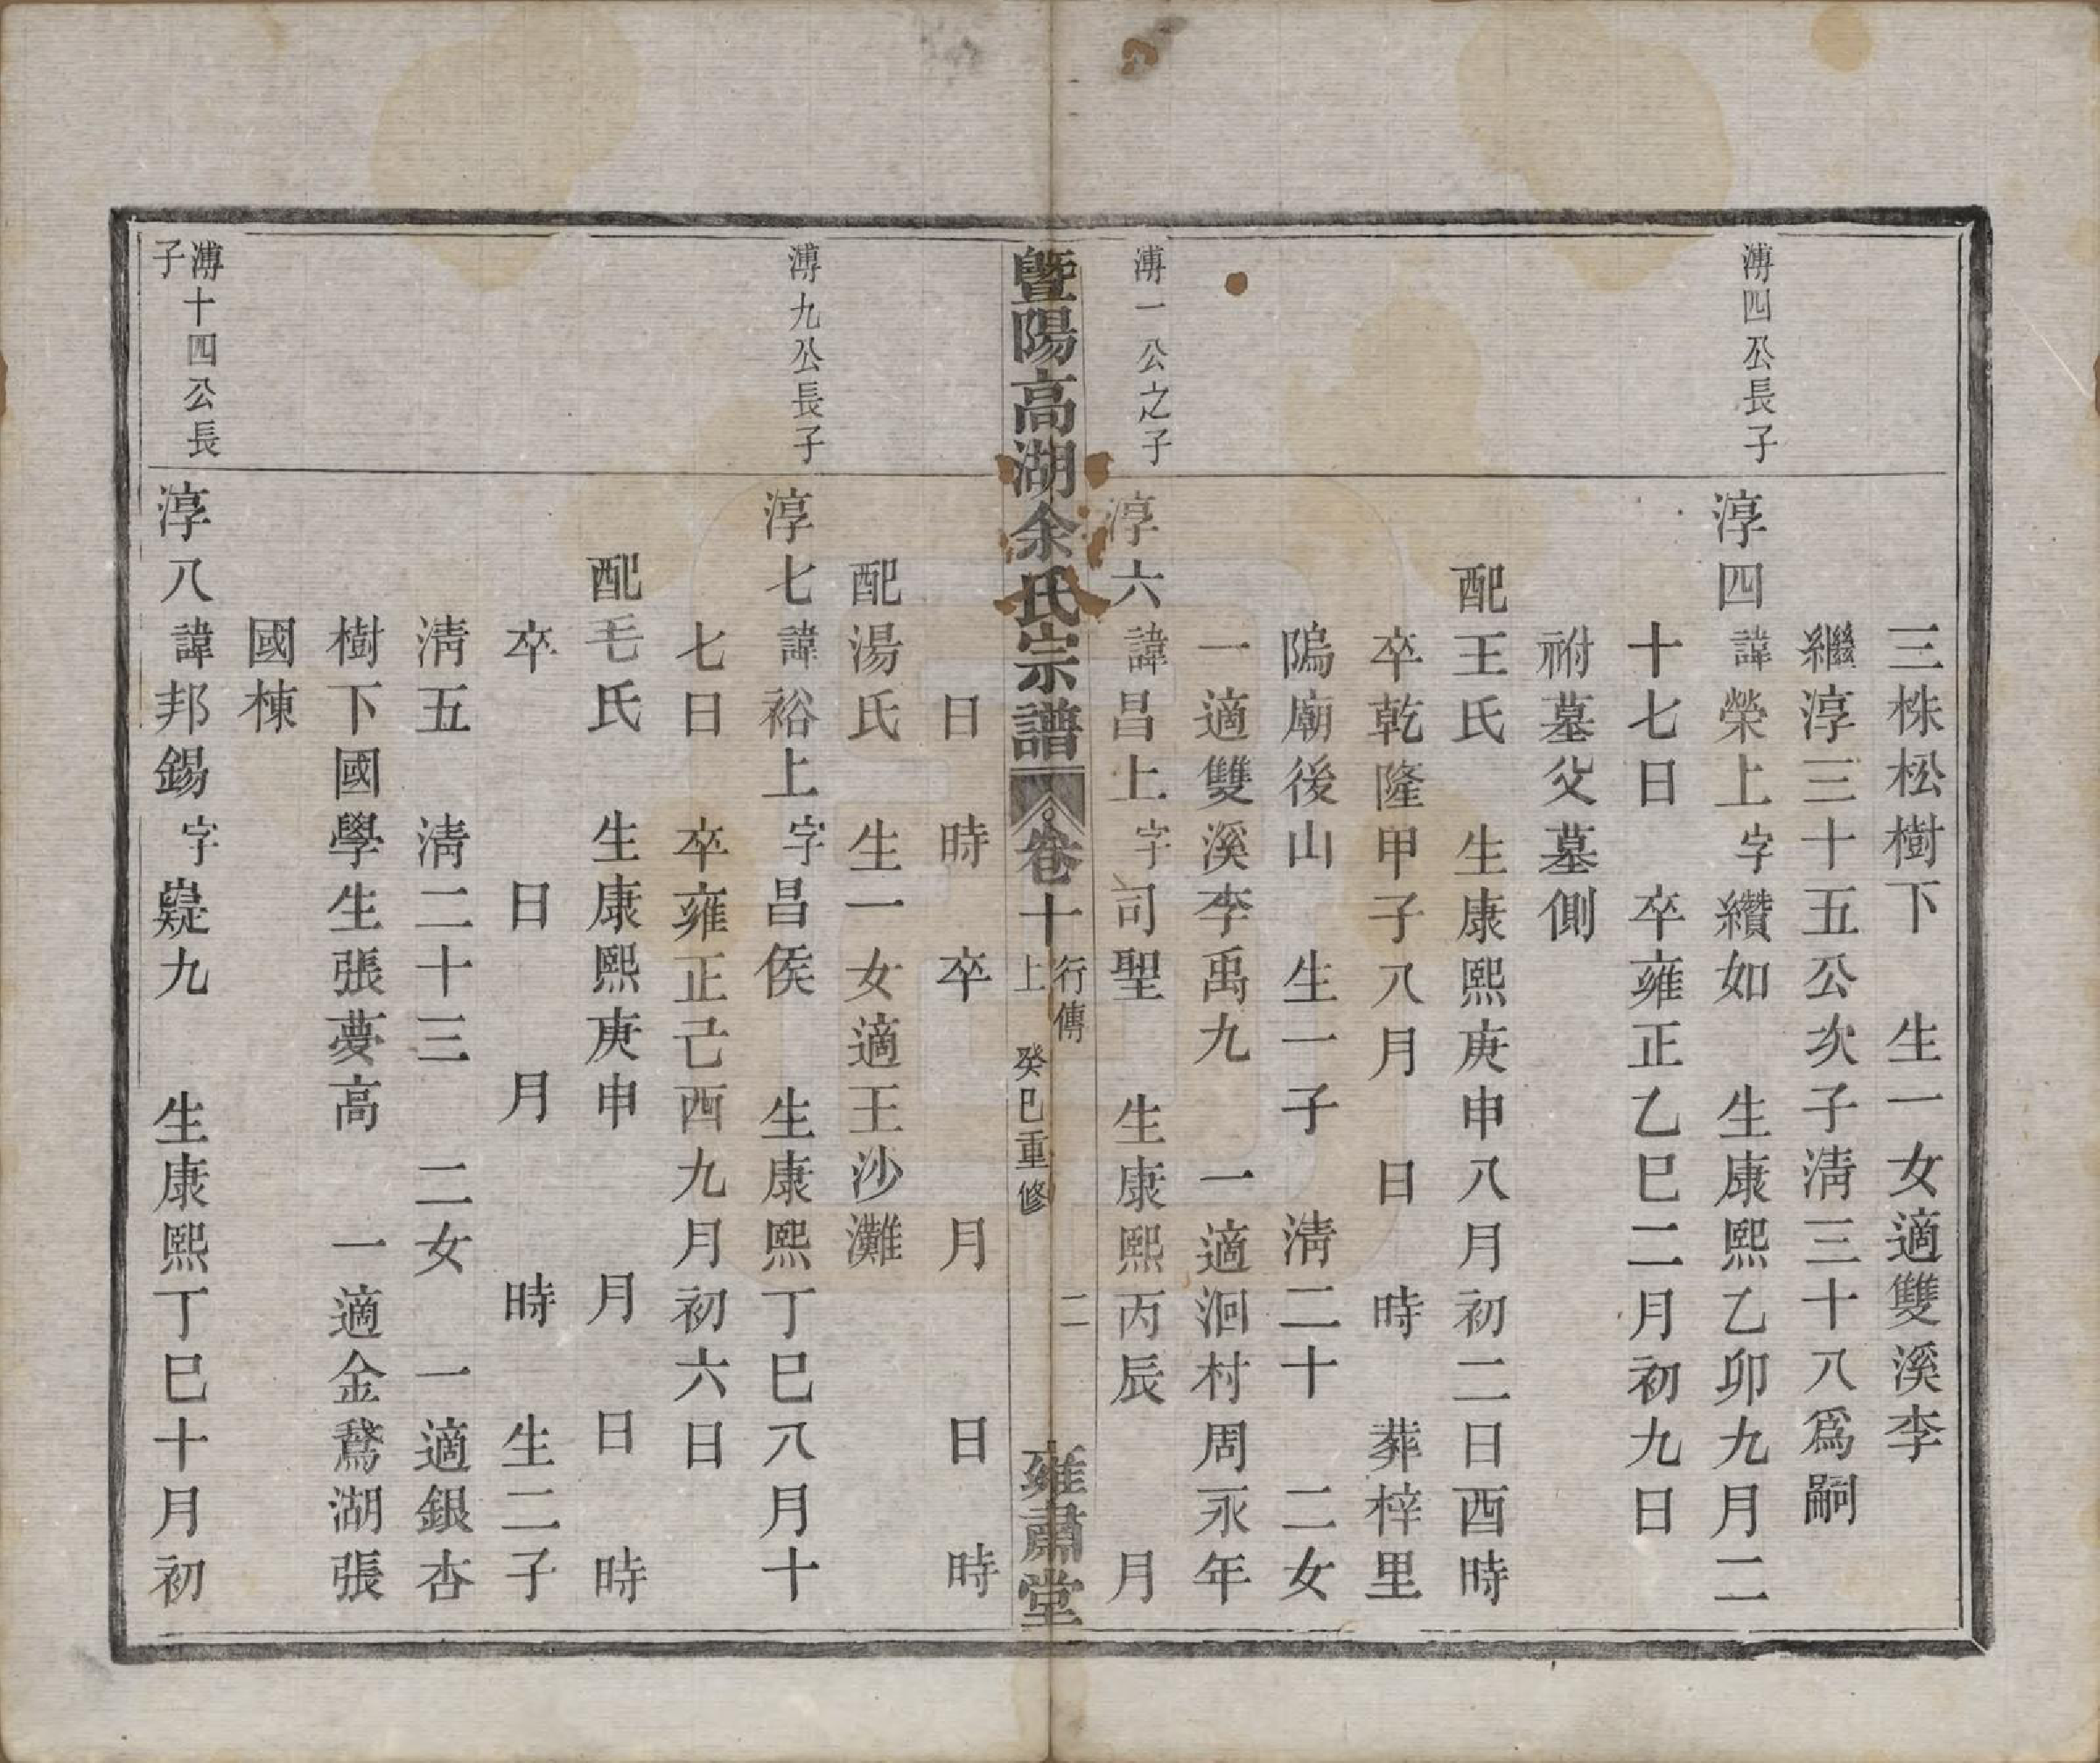 三株松樹下　生一女適雙溪李
繼淳三十五公次子淸三十八爲嗣
溥四公長子
淳四諱榮上字纘如　生康熙乙卯九月二
十七日　卒雍正乙巳二月初九日
祔墓父墓側
配王氏　生康熙庚申八月初二日酉時
卒乾隆甲子八月　日　時　葬梓里
隝廟後山　生一子　淸二十　二女
一適雙溪李禹九　一適洄村周永年
溥一公之子
淳六諱昌上字司聖　生康熙丙辰　月
暨陽高湖余氏宗譜　卷十上　行傳　癸巳重修　二　雍肅堂
日　時　卒　月　日　時
配湯氏　生一女適王沙灘
溥九公長子
淳七諱裕上字昌侯　生康熙丁巳八月十
七日　卒雍正己酉九月初六日
配毛氏　生康熙庚申　月　日　時
卒　日　月　時　生二子
淸五　淸二十三　二女　一適銀杏
樹下國學生張夢高　一適金鵞湖張
國棟
溥十四公長子
淳八諱邦錫字嶷九　生康熙丁巳十月初